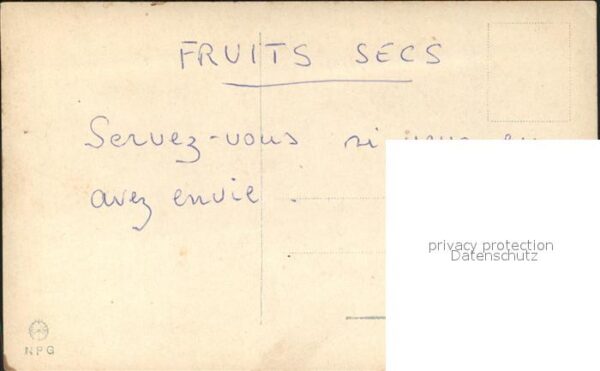 FRUITS SECS
Servez-vous si vous en
avez envie.
privacy protection
Datenschutz
NPG